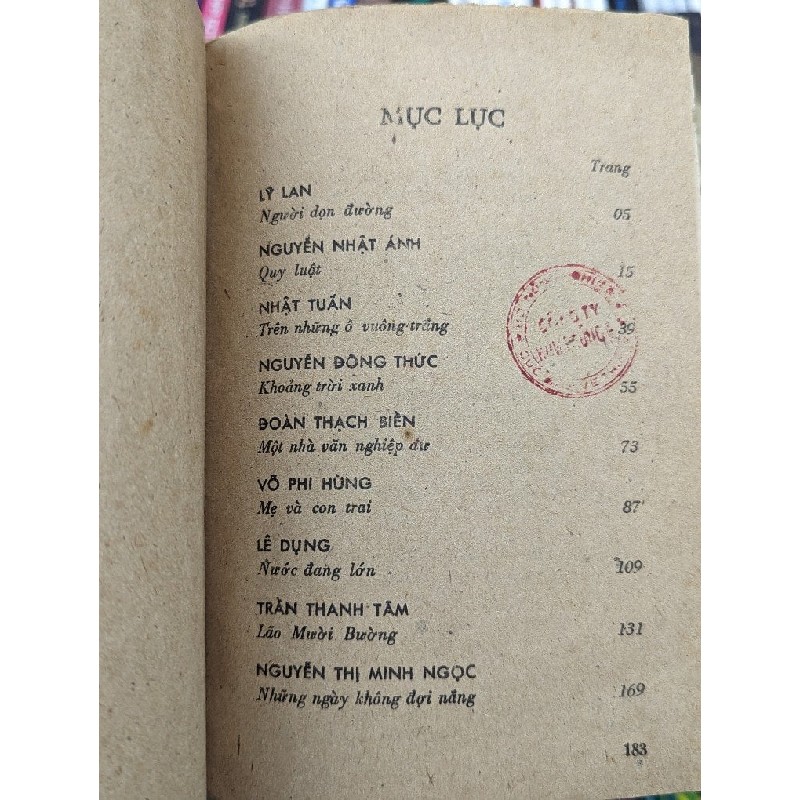 MỤC LỤC
Trang
LÝ LAN
Người dọn đường 05
NGUYỄN NHẬT ÁNH
Quy luật 15
NHẬT TUẤN
Trên những ô vuông trắng 39
NGUYỄN ĐÔNG THỨC
Khoảng trời xanh 55
ĐOÀN THẠCH BIỀN
Một nhà văn nghiệp dư 73
VÕ PHI HÙNG
Mẹ và con trai 87
LÊ DỤNG
Nước đang lớn 109
TRẦN THANH TÂM
Lão Mười Bường 131
NGUYỄN THỊ MINH NGỌC
Những ngày không đợi nắng 169
183
CÔNG TY